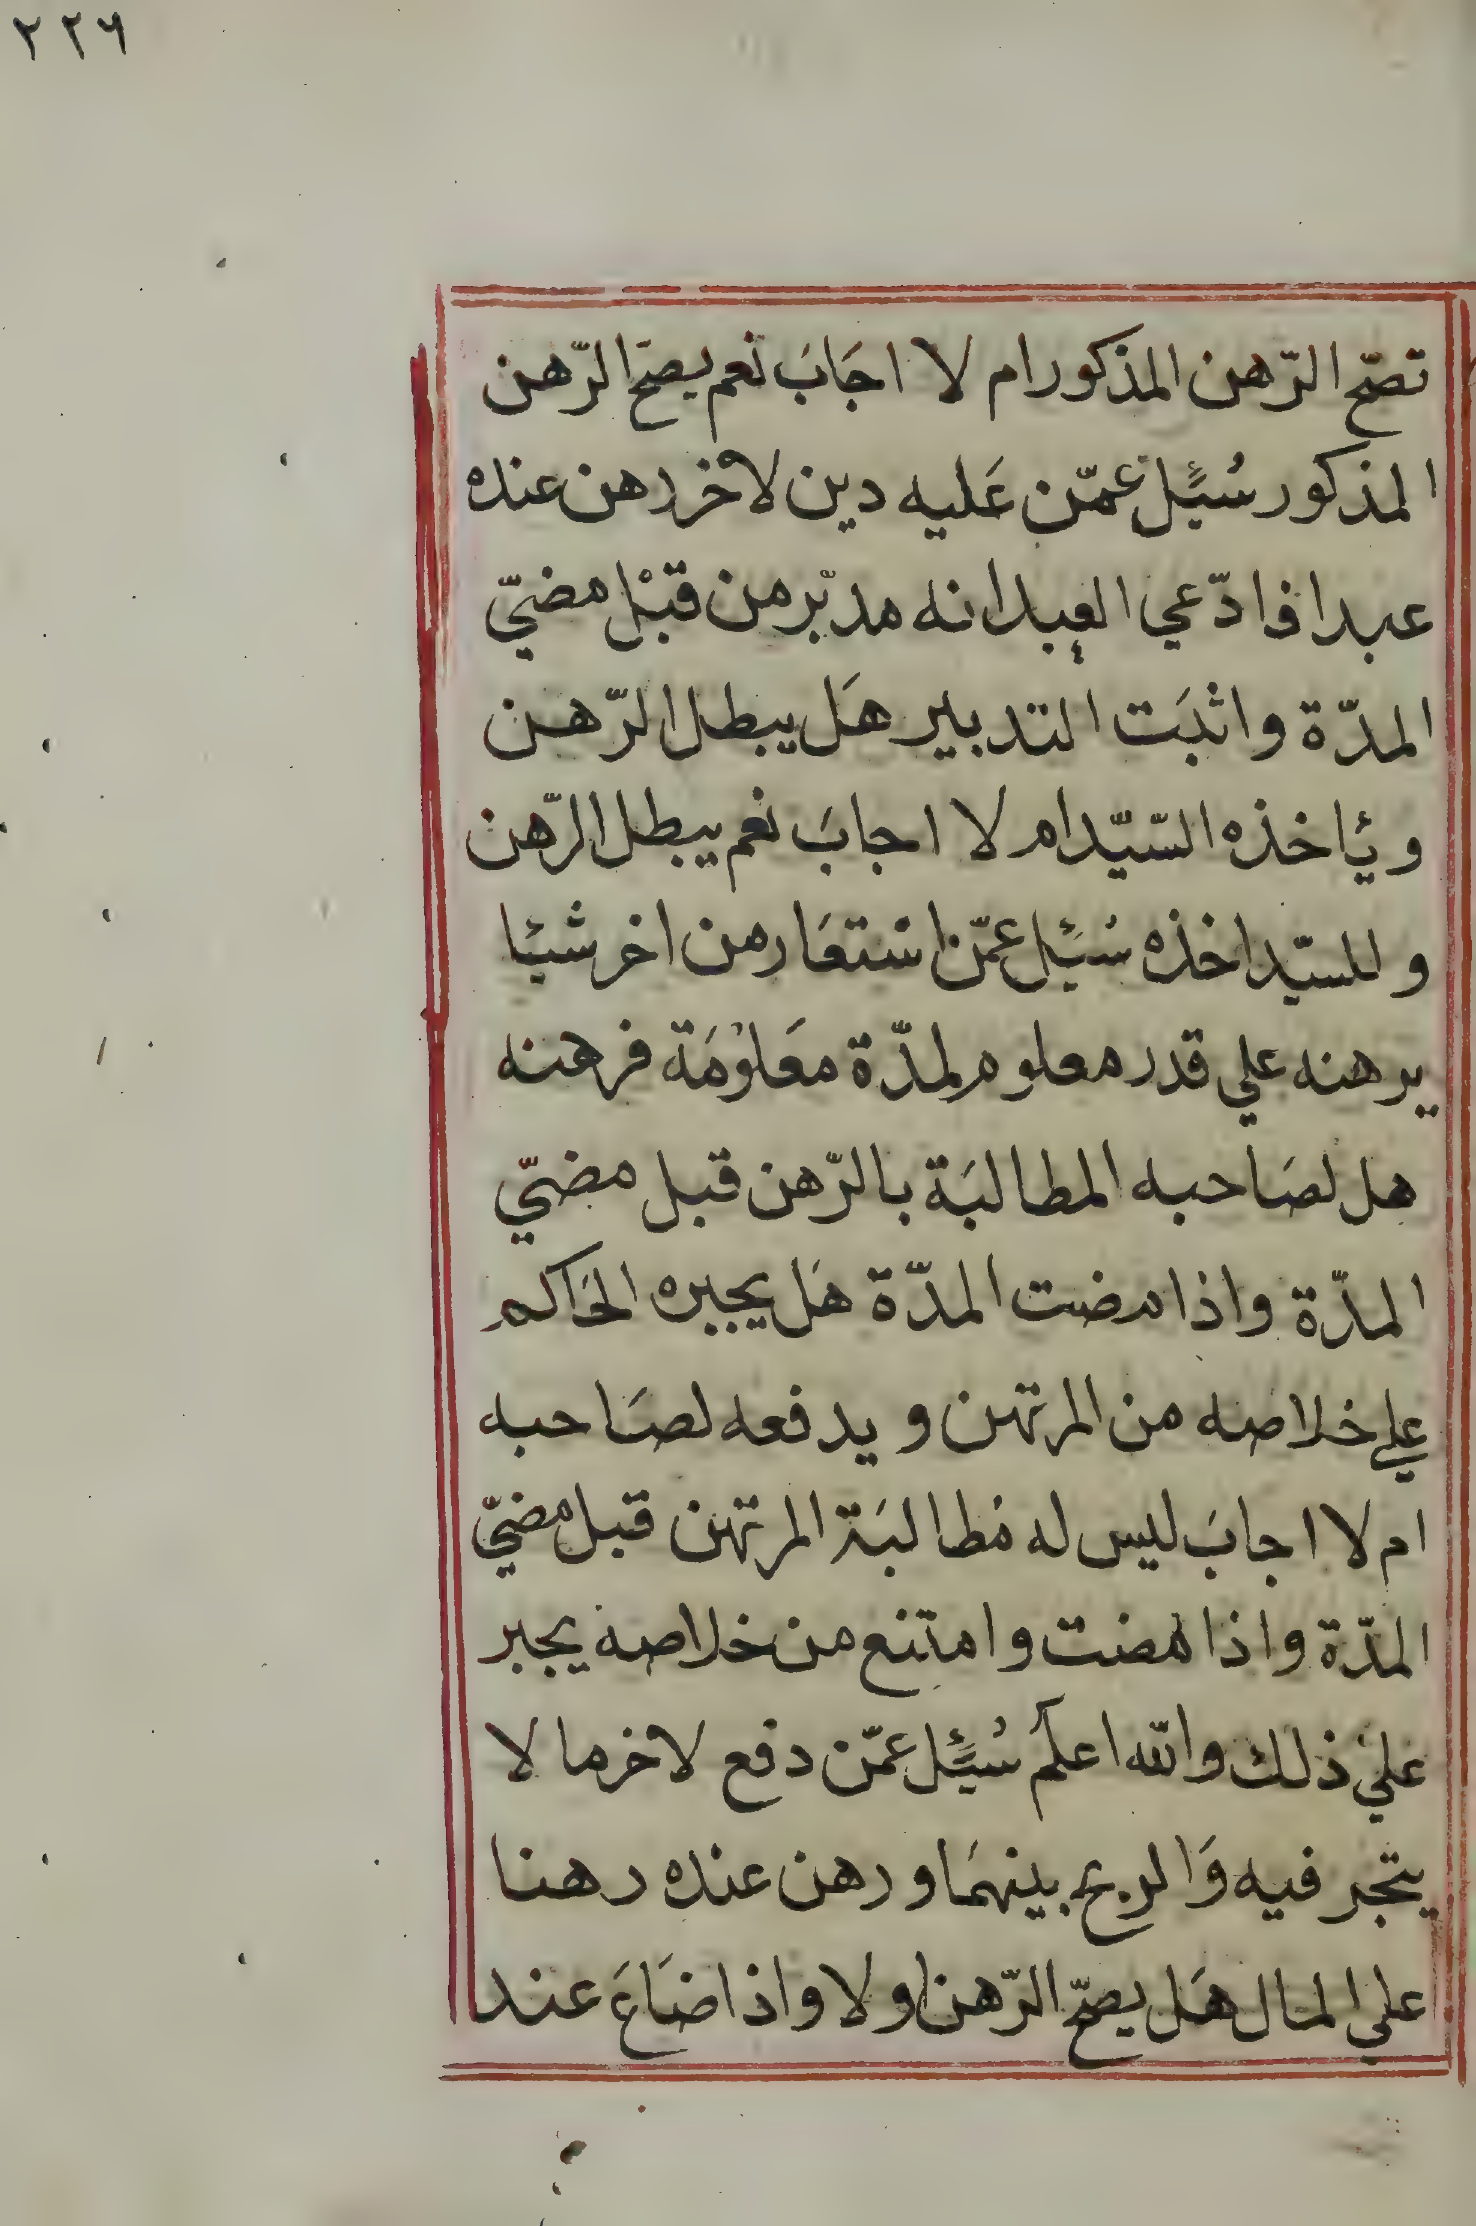 ٢٢٦
تصّح الرّهن المذكور ام لا اجَابَ نعم يصحّ الرّهن
المذكور سُئِل عمّن عَليه دين لاخر رهن عنده
عبدا فادّعي العبد انه مدبّر من قبْل مضيّ
المدّة واثبَت التدبير هَل يبطل الرّهن
وئاخذه السّيّد ام لا اجابَ نعم يبطل الرّهن
وللسيّد اخذه سُئِل عمّن استعَار من اخر شيئا
يرهنه علي قدر معلوم لمدّة معَلوْمَة فرهنه
هل لصَاحبه المطالبَة بالرّهن قبل مضيّ
المدّة واذا مضت المدّة هَل يجبره الحَاكم
علي خلاصه من المرتهن ويدفعه لصَاحبه
ام لا اجابَ ليس له مُطالبَة المرتهن قبل مضيّ
المدّة واذا مضت وامتنع من خلاصه يجبر
علي ذلك والله اعلَم سُئِل عمّن دفع لاخر مالا
يتجر فيه وَالربح بينهمَا ورهن عنده رهنا
علي المال هَل يصحّ الرّهن اولا واذا ضَاعَ عند